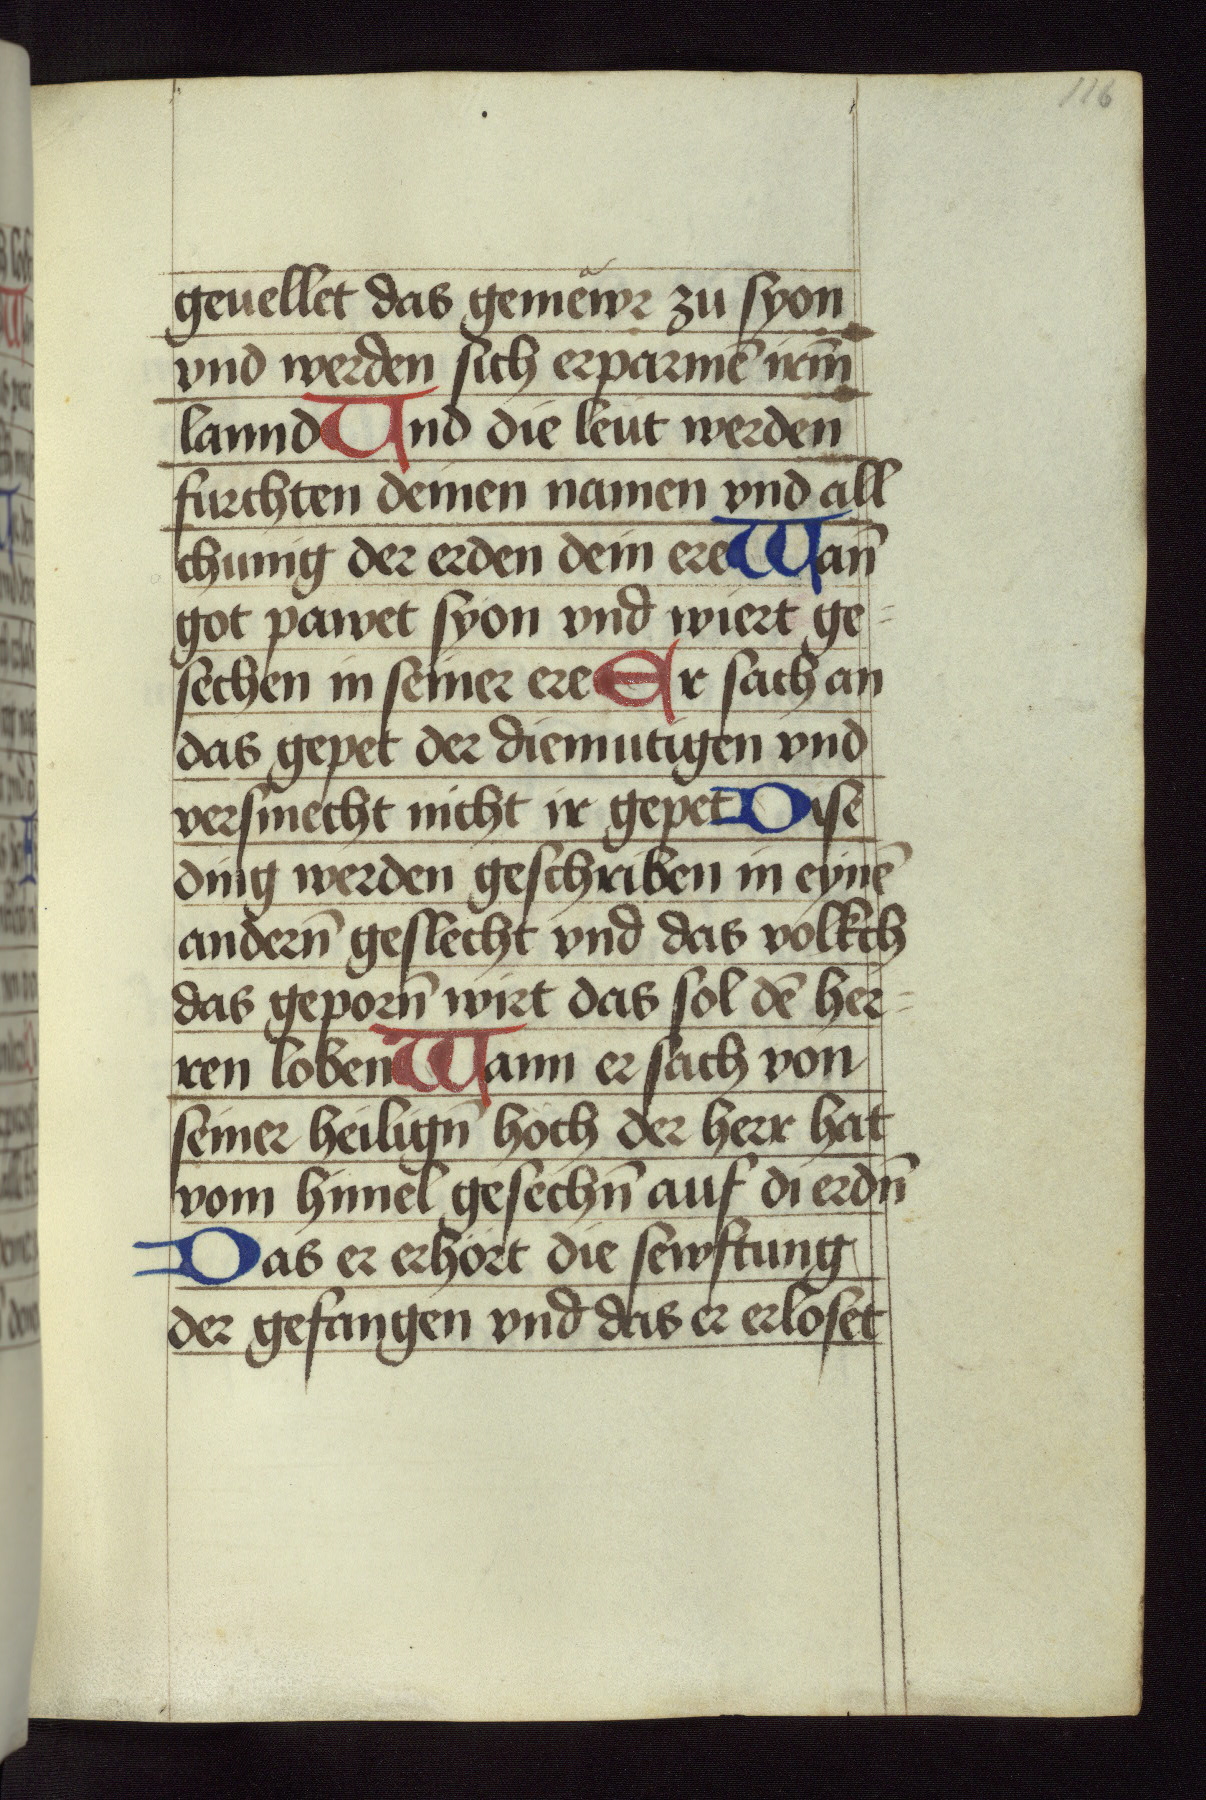 116
geuellet das gemëwr zu syon
vnd werden sich erparmē irm̄
lannd Und die leut werden
furchten deinen namen vnd all
chunig der erden dein ere Wan̄
got pawet syon vnd wiert ge=
sechen in seiner ere Er sach an
das gepet der diemutigen vnd
versmecht nicht ir gepet Dise
ding werden geschriben in eynē
andern̄ geslecht vnd das volkch
das geporn̄ wirt das sol dē her=
ren loben Wann er sach von
seiner heilign̄ höch der herr hat
vom himel gesechn̄ auf di erdn̄
Das er erhört die sewftung
der gefangen vnd das er erloset